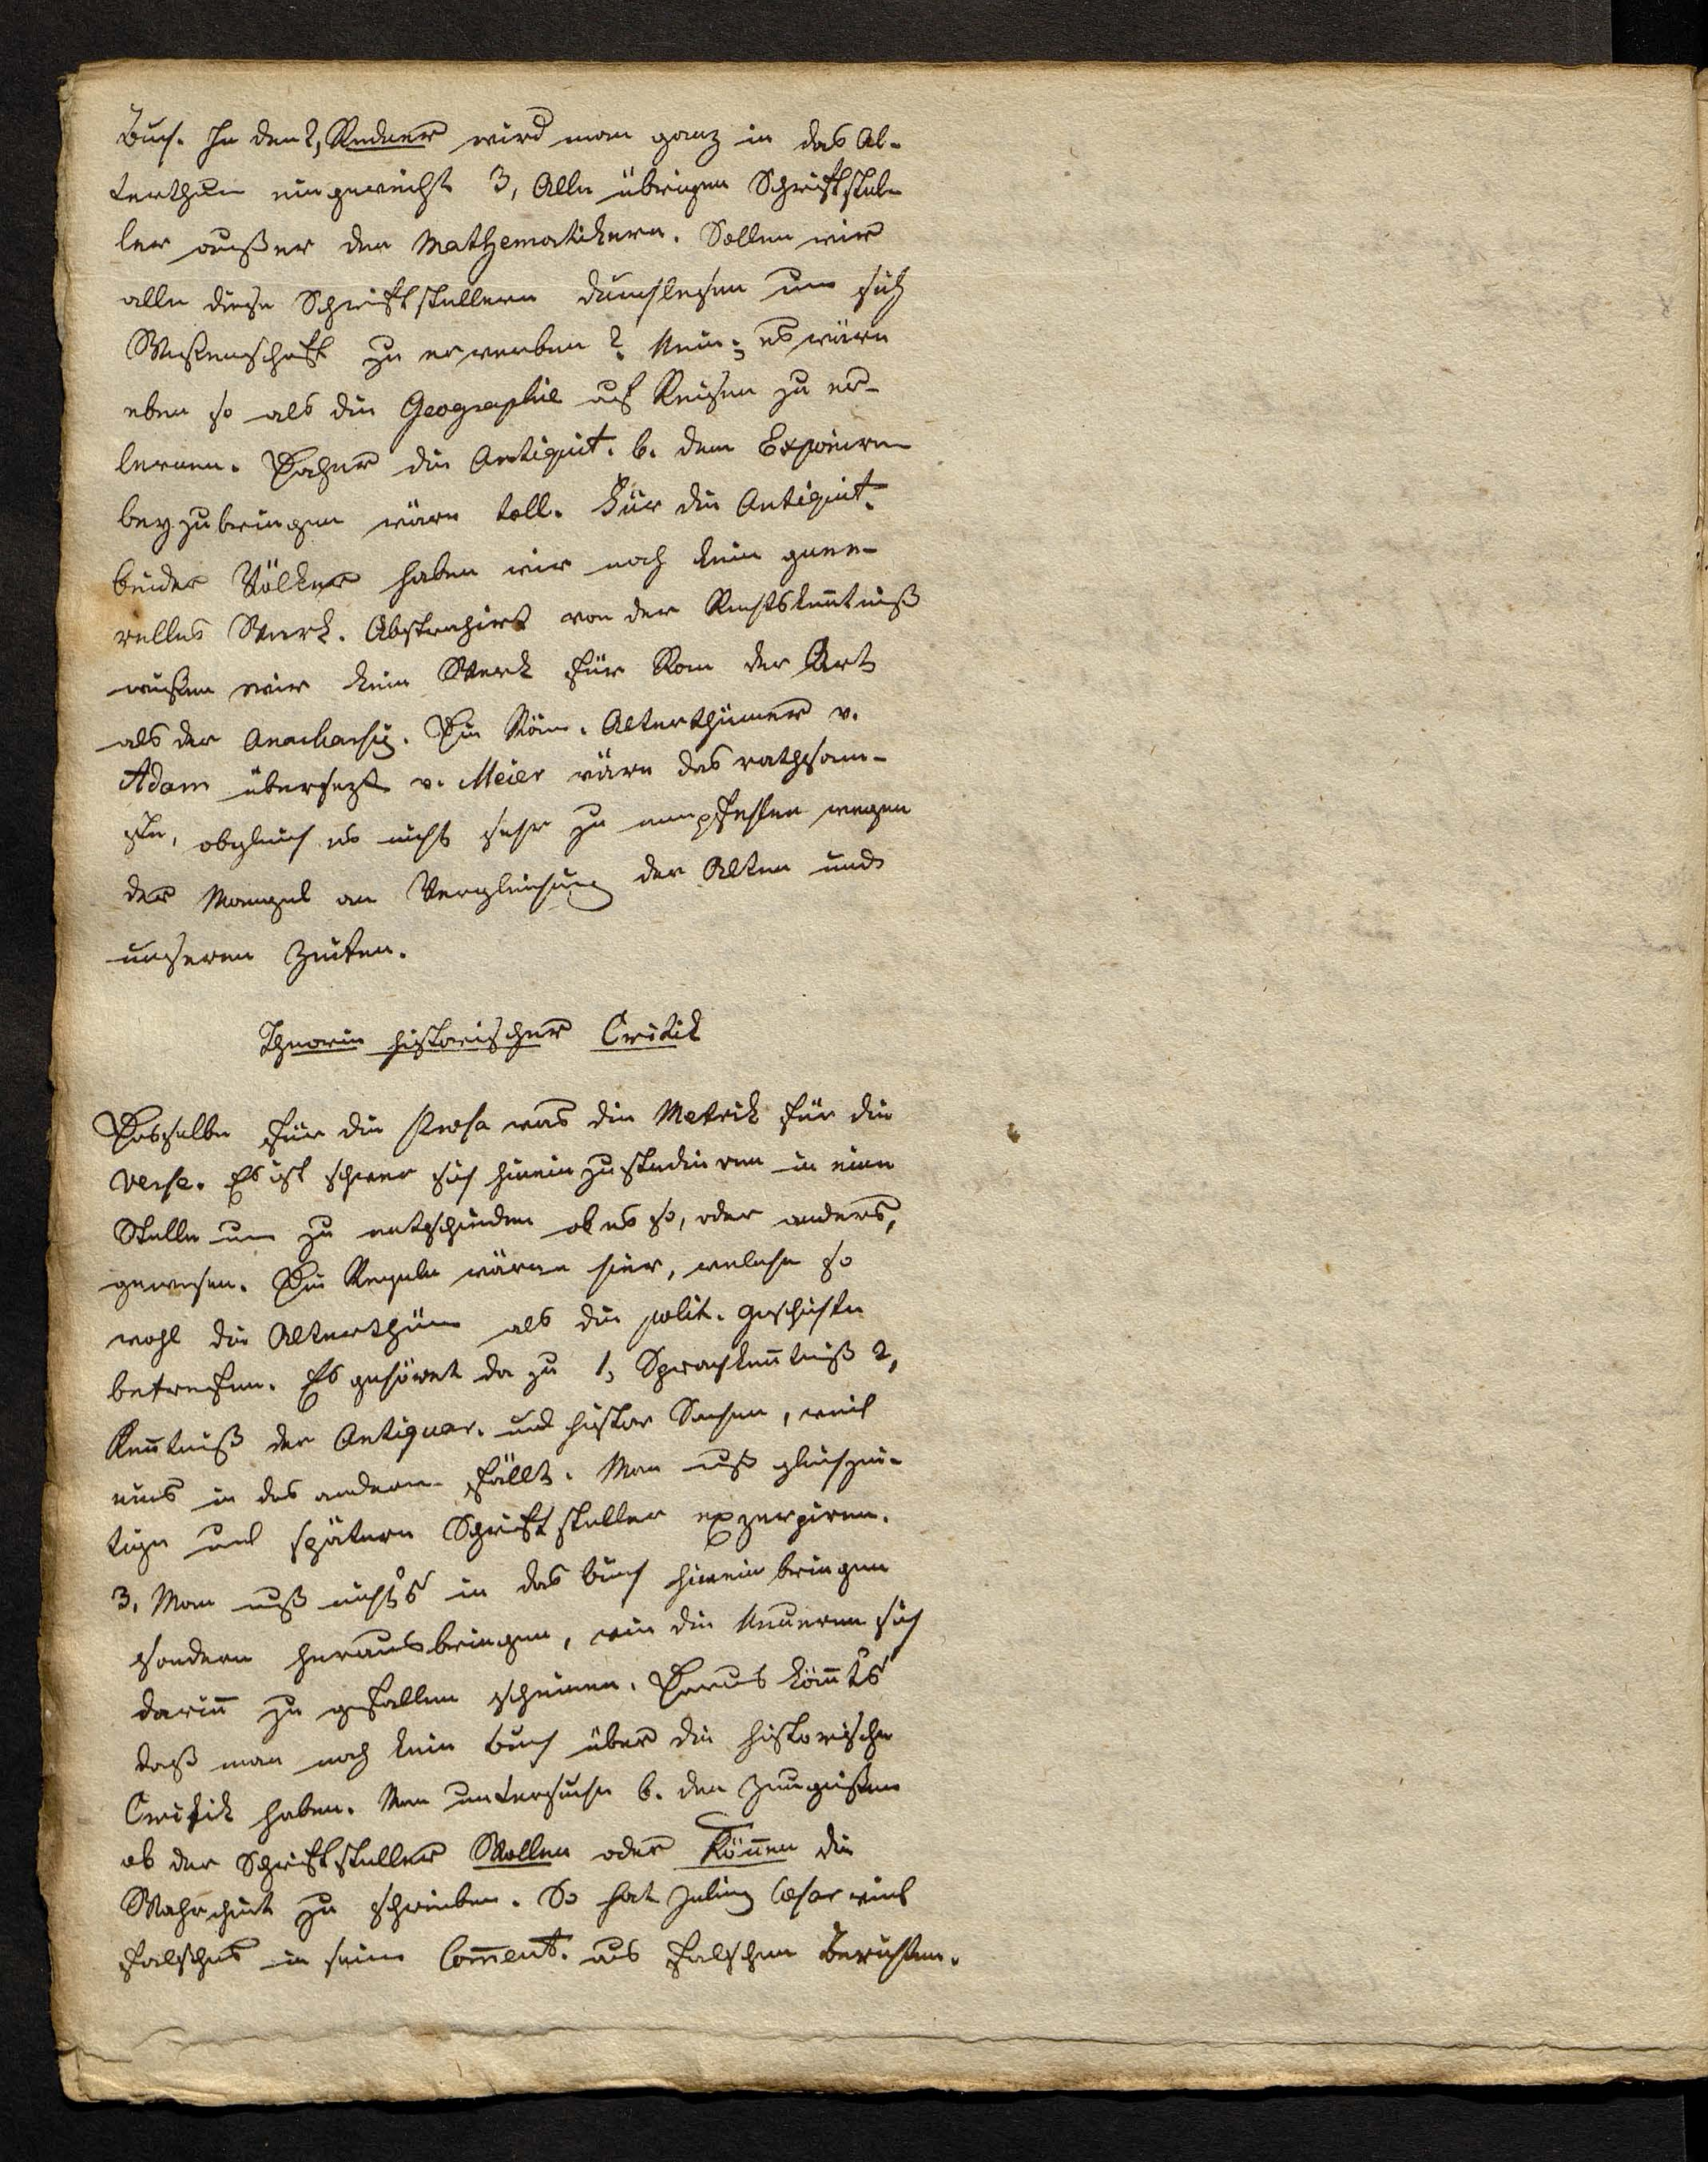 Buch. In den 2, Redner wird man ganz in das Al-
terthum eingeweiht 3, Alle übrigen Schriftstel-
ler außer den Mathematikern. Sollen wir
alle diese Schriftstellern durchlesen um sich
Wißenschaft zu erwerben? Nein; es wäre
eben so als die Geographie auf Reisen zu er-
lernen. Daher die Antiquit. b. dem Exponiren
beyzubringen wäre toll. Für die Antiquit.
beider Völker haben wir noch kein gene-
relles Werk. Abstrahirt von der Rechtskentniß
wißen wir kein Werk für Rom der Art
als der Anacharsis. Die Röm. Alterthümer v.
Adam übersezt v. Meier wäre das rathsam-
ste, obgleich es nicht sehr zu empfehlen wegen
der Mangel an Vergleichung der Alten und
unseren Zeiten.
Theorie historischer Critik
Dasselbe für die Prosa was die Metrik für die
Verse. Es ist schwer sich hinein zu studieren in eine
Stelle um zu entscheiden ob es so, oder anders,
gewesen. Die Regeln wären hier, welche so
wohl die Alterthüm als die polit. Geschichte
betrefen. Es gehöret da zu 1, Sprachkentniß 2,
Kentniß der Antiquar. und histor Sachen, weil
eins in das andere fällt. Man muß gleichzei-
tige und spätere Schriftsteller exzerpiren.
3, Man muß nichts in das Buch hinein bringen
sondern herausbringen, wie die Neueren sich
darin zu gefallen scheinen. Daraus kömts
daß man noch kein Buch über die historische
Critik haben. Man untersuche b. den Zeugnißen
ob der Schriftsteller Wollen oder Können die
Wahrheit zu schreiben. So hat Julius Cæsar viel
falsches in seine Coment. aus falschen Berichten.